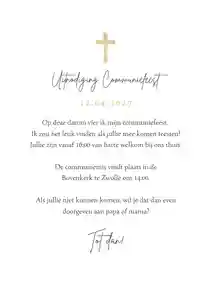 Uitnodiging Communiefeest
12.04.2027
Op deze datum vier ik mijn communiefeest.
Ik zou het leuk vinden als jullie mee komen feesten!
Jullie zijn vanaf 16:00 van harte welkom bij ons thuis
De communiemis vindt plaats in de
Bovenkerk te Zwolle om 14:00.
Als jullie niet kunnen komen, wil je dat dan even
doorgeven aan papa of mama?
Tot dan!